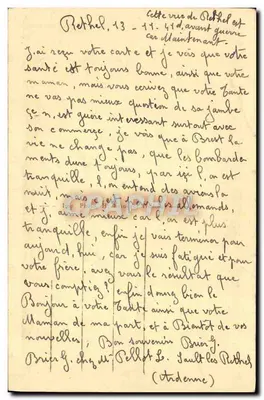 Cette vue de Rethel est
Rethel, 13 - 11 - 41 d'avant guerre
pas Maintenant
J'ai reçu votre carte et je vois que votre
santé est toujours bonne, ainsi que votre
maman, mais vous écrivez que votre Tante
ne vas pas mieux question de sa jambe
ça n'est guère intéressant surtout avec
son commerce, je vois que à Brest la
vie ne change pas, que les bombarde
ments dure toujours, par ici l'on est
tranquille l'on entend des avions la
nuit,
mieux car l'on est plus
tranquille, enfin je vais terminer pour
aujourd'hui, car je suis fatigué et pour
votre frère, avez vous le résultat que
vous comptiez? enfin donnez bien le
Bonjour à votre Tante ainsi que votre
Maman de ma part, et à Bientôt de vos
nouvelles, Bon souvenir Brier G.
Brier G. chez Mr Pellot L. Sault les Rethel
(Ardenne)